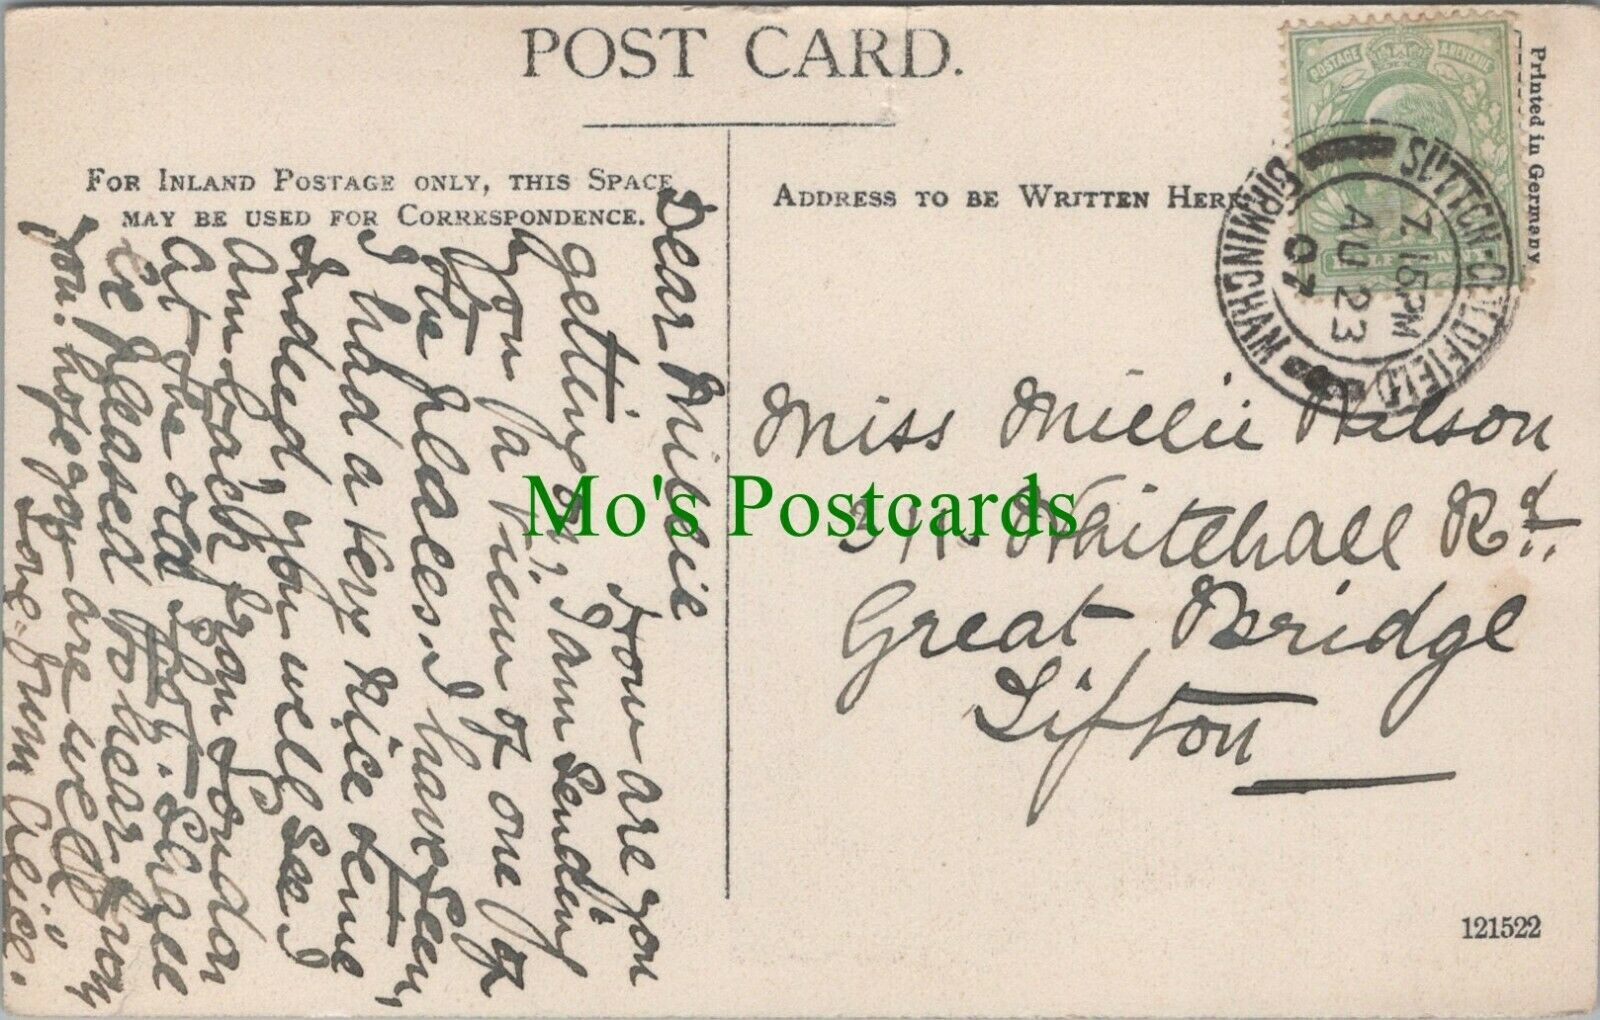 POST CARD.
FOR INLAND POSTAGE ONLY, THIS SPACE
MAY BE USED FOR CORRESPONDENCE.
ADDRESS TO BE WRITTEN HERE
Printed in Germany
POSTAGE REVENUE
HALFPENNY
SUTTON-COLDFIELD
BIRMINGHAM
7.15PM
AU 23
07
Dear Millie
How are you
getting on, I am sending
you a view of one of
the places I have seen,
I had a very nice time
indeed, you will see I
am back from London
at the old Shop. Shall
be pleased to hear from
you. hope you are well
Love from Alice.
Miss Millie Wilson
Whitehall Rd.
Great Bridge
Tipton
Mo's Postcards
121522